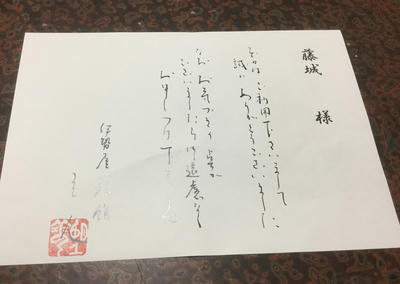 藤城 様
本日はご利用下さいまして
誠にありがとうございました
なお お気づきの点等が
ございましたらば遠慮なく
お申しつけ下さいませ
伊勢屋